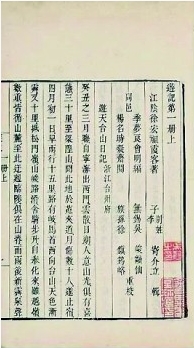 遊記第一册上
江陰徐宏祖霞客著
季夢良會明編
同邑
楊名時凝齋閱
族孫徐鎮筠峪
重校
遊天台山日記浙江台州府
癸丑之三月晦自寧海出西門雲散日朗人意山光俱有喜
三十里至梁隍山聞此地於菟夾道月傷數十人遂止宿
四月初一日早雨行十五里路有岐馬首西向台山天色漸
霽又十里抵松門嶺山峻路滑舍騎步升自奉化來雖越嶺
數重皆循山麓至此迂迴臨陟俱在山脊而雨後新霽泉聲